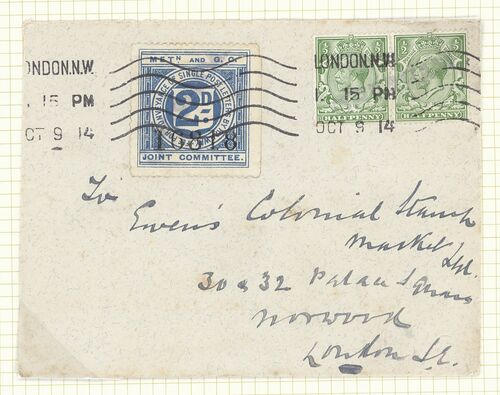 LONDON.N.W.
1. 15 PM
OCT 9 14
METN AND G. C.
SINGLE POST LETTER
2D.
10818
JOINT COMMITTEE.
LONDON.N.W.
1. 15 PM
OCT 9 14
HALFPENNY
HALFPENNY
To
Ewen's Colonial Stamp
Market Ltd.
30 & 32 Palace Square
Norwood
London S.E.